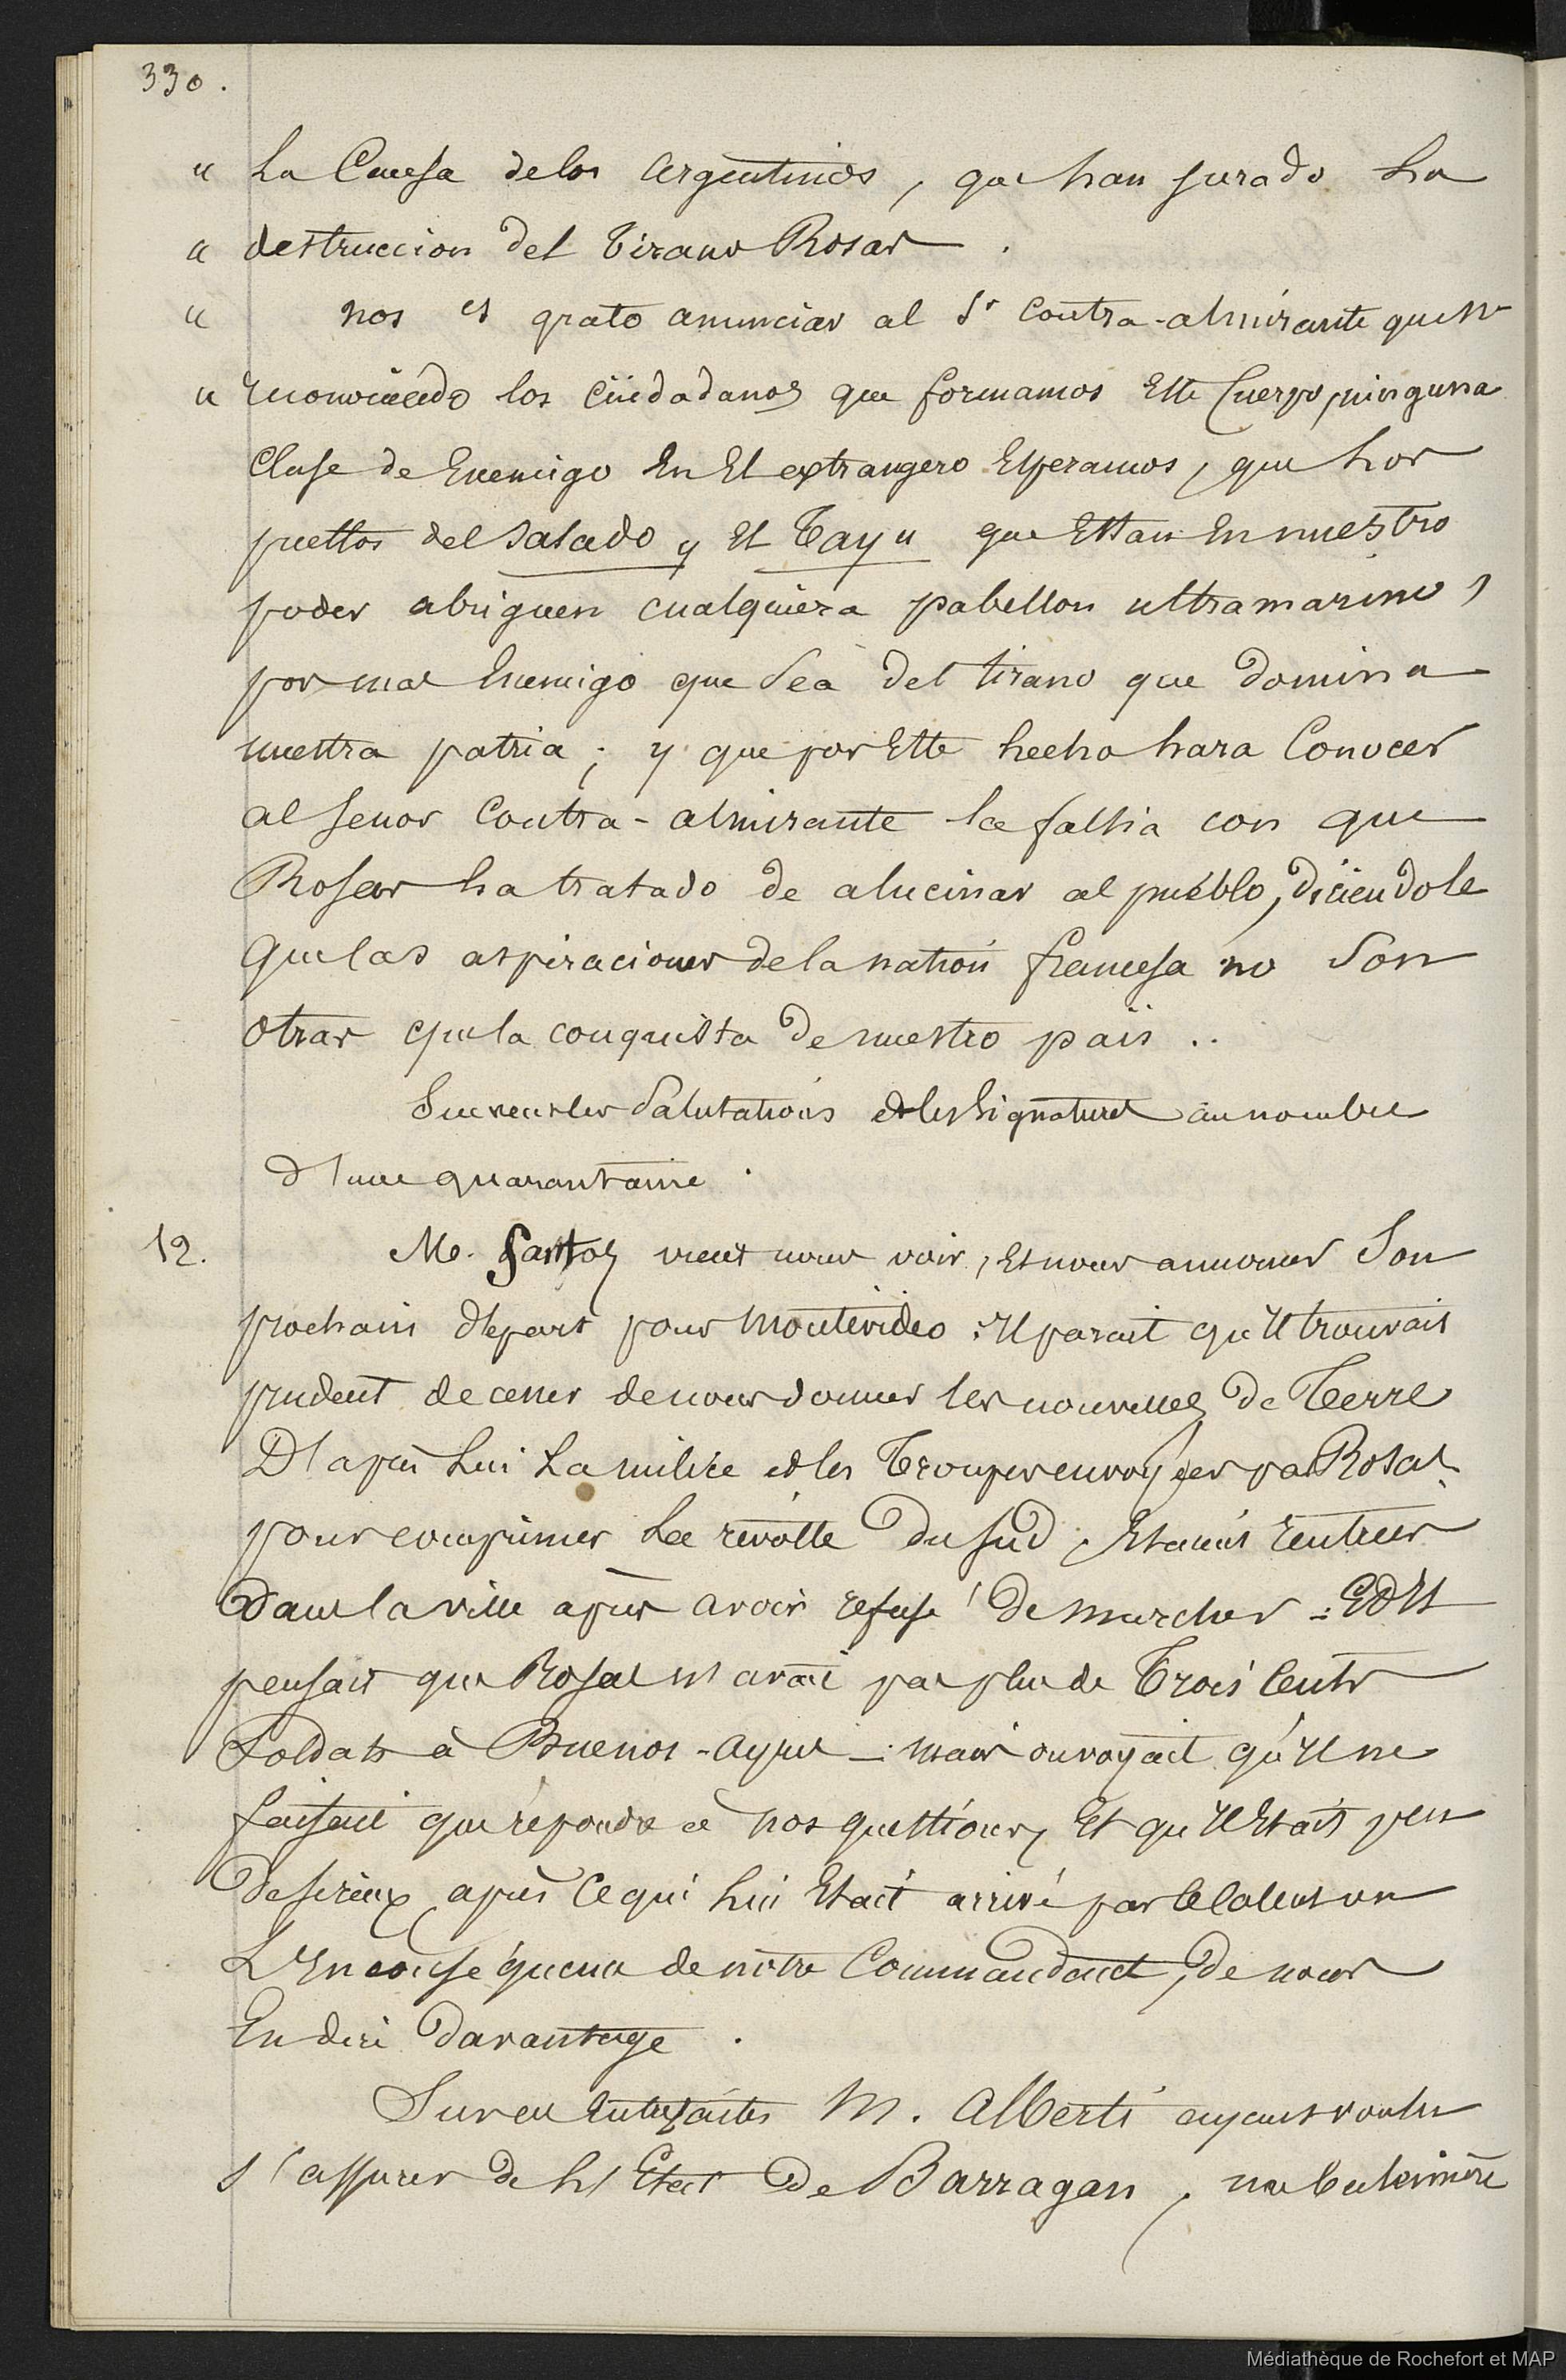 330.
" La Causa de los Argentinos, que han jurado La
" destruccion del Tirano Rosas.
" nos es grato anunciar al Sr Contra-almirante que no
" reconociendo los Ciudadanos que formamos Este Cuerpo, ninguna
Clase de Enemigo En El extrangero Esperamos, que Los
puestos del Salado y El Tayu que Estan En nuestro
poder abriguen cualquiera pabellon ultramarino,
por mas Enemigo que Sea del tirano que domina
nuestra patria; y que por Este hecho hara Conocer
al Senor Contra-almirante la falsia con que
Rosas ha tratado de alucinar al pueblo, diciendole
que las aspiraciones de la nation francesa no Son
otras que la conquista de nuestro païs ..
Suivent les Salutations et les Signatures au nombre
d'une quarantaine.
12.
M. Santoz vient nous voir, Et nous annoncer Son
prochain départ pour Montévidéo : Il parait qu'Il trouvait
prudent de cesser de nous donner les nouvelles de Terre
D'après Lui La milice et les Troupes envoyées par Rosas
pour comprimer La révolte Du Sud, Etaient rentrées
Dans la ville après avoir refusé De marcher : Et Il
pensait que Rosas n'avait pas plus de Trois Cents
Soldats à Buenos-ayres _ : mais on voyait qu'Il ne
faisait que répondre à nos questions, Et qu'Il Etait peu
Désireux, après Ce qui Lui Etait arrivé par le Calcul ou
L'Inconséquence de notre Commandant, de nous
En dire Davantage.
Sur ces Entrefaites M. Alberti ayant voulu
s'assurer de L'Etat De Barragan, une baleinière
Médiathèque de Rochefort et MAP